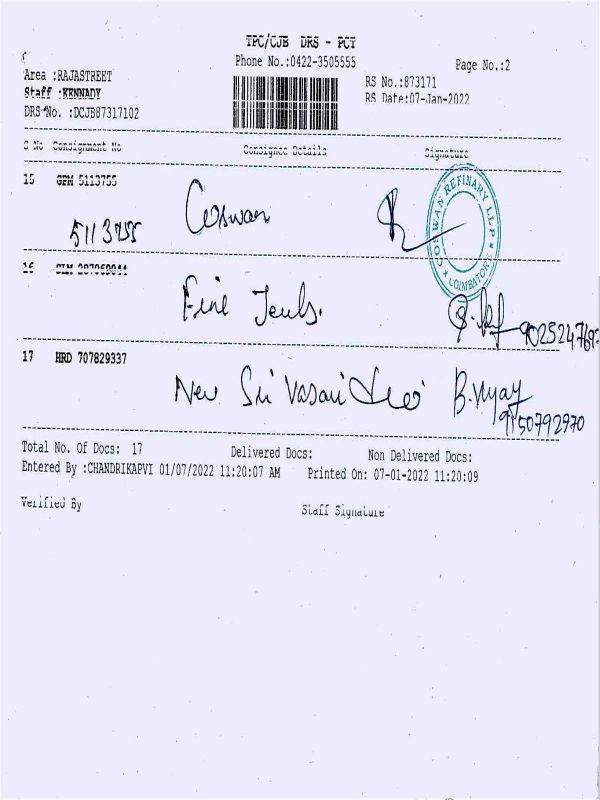 TPC/CJB DRS - PCT
Phone No.:0422-3505555
Page No.:2
Area :RAJASTREET
RS No.:873171
Staff :KENNADY
RS Date:07-Jan-2022
DRS No. :DCJB87317102
S No Consignment No Consignee Details Signature
15 GPM 5113755
5113755 Coswan
COSWAN REFINARY LLP
* COIMBATORE *
16
Fine Jeuls.
17 HRD 707829337
New Sri Vasavi B.Vijay
9150792970
Total No. Of Docs: 17 Delivered Docs: Non Delivered Docs:
Entered By :CHANDRIKAPVI 01/07/2022 11:20:07 AM Printed On: 07-01-2022 11:20:09
Verified By Staff Signature